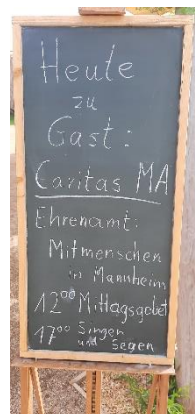 Heute
zu
Gast:
Caritas MA
Ehrenamt:
Mitmenschen
in Mannheim
12⁰⁰ Mittagsgebet
17⁰⁰ Singen
und Segen